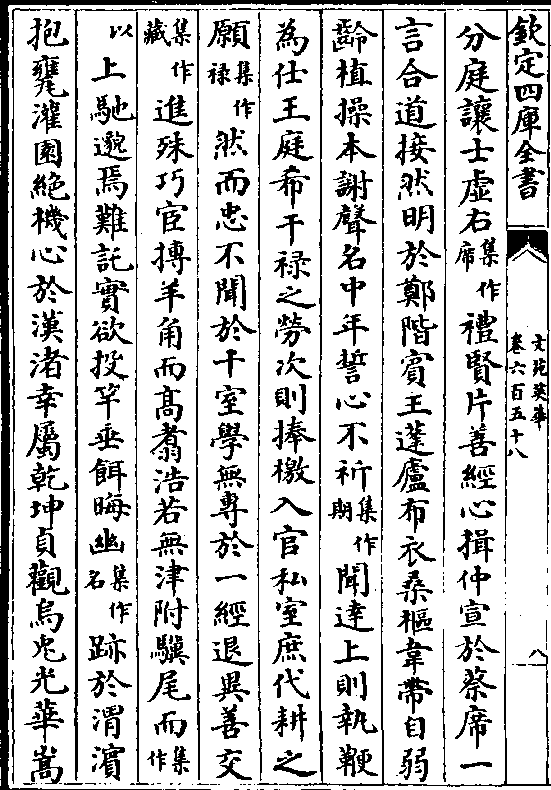 欽定四庫全書
文苑英華
卷六百五十八
八
分庭讓士虛右集作席禮賢片善經心揖仲宣於蔡席一
言合道接然明於鄭階賓王蓬廬布衣桑樞韋帶自弱
齡植操本謝聲名中年誓心不祈集作期聞達上則執鞭
為仕王庭希干祿之勞次則捧檄入官私室庶代耕之
願集作祿然而忠不聞於十室學無專於一經退異善交
集作藏進殊巧宦摶羊角而髙翥浩若無津附驥尾而集作
以上馳邈焉難託實欲投竿垂餌晦幽集作名跡於渭濵
抱甕灌園絶機心於漢渚幸屬乾坤貞觀烏兔光華嵩